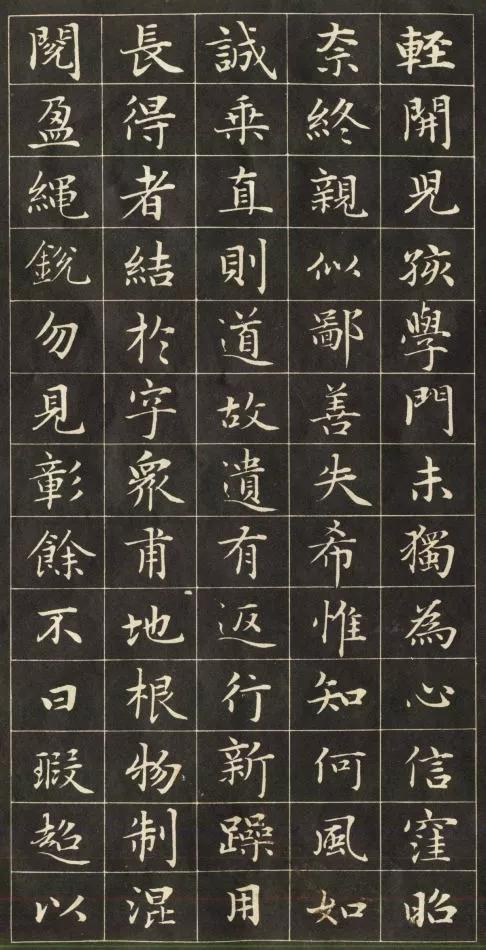 輕開児孩學門未獨為心信窪昭
奈終親似鄙善失希惟知何風如
誠乗直則道故遺有返行新躁用
長得者結於字衆甫地根物制混
閱盈繩銳勿見彰餘不曰瑕超以